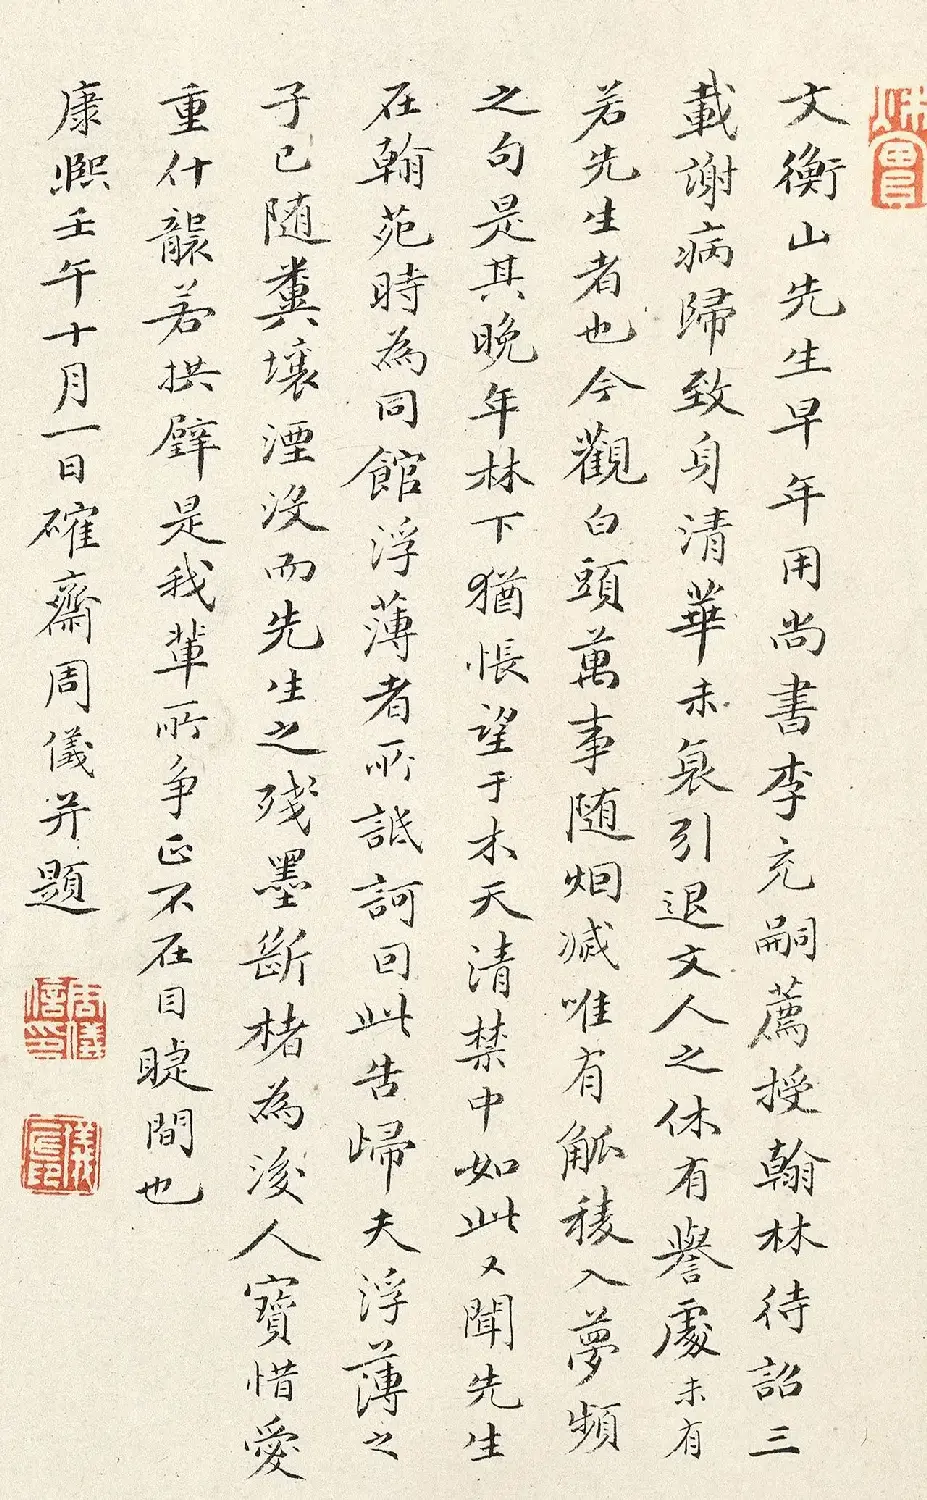 文衡山先生早年用尚書李充嗣薦授翰林待詔三
載謝病歸致身清華未衰引退文人之休有譽處未有
若先生者也今觀白頭萬事随烟滅唯有觚稜入夢頻
之句是其晚年林下猶悵望于木天清禁中如此又聞先生
在翰苑時為同館浮薄者所詆訶回此告歸夫浮薄之
子已随糞壤湮没而先生之残墨斷楮為後人寶惜愛
重什龔若拱璧是我輩所争正不在目睫間也
康熙壬午十月一日確齋周儀并題
周儀